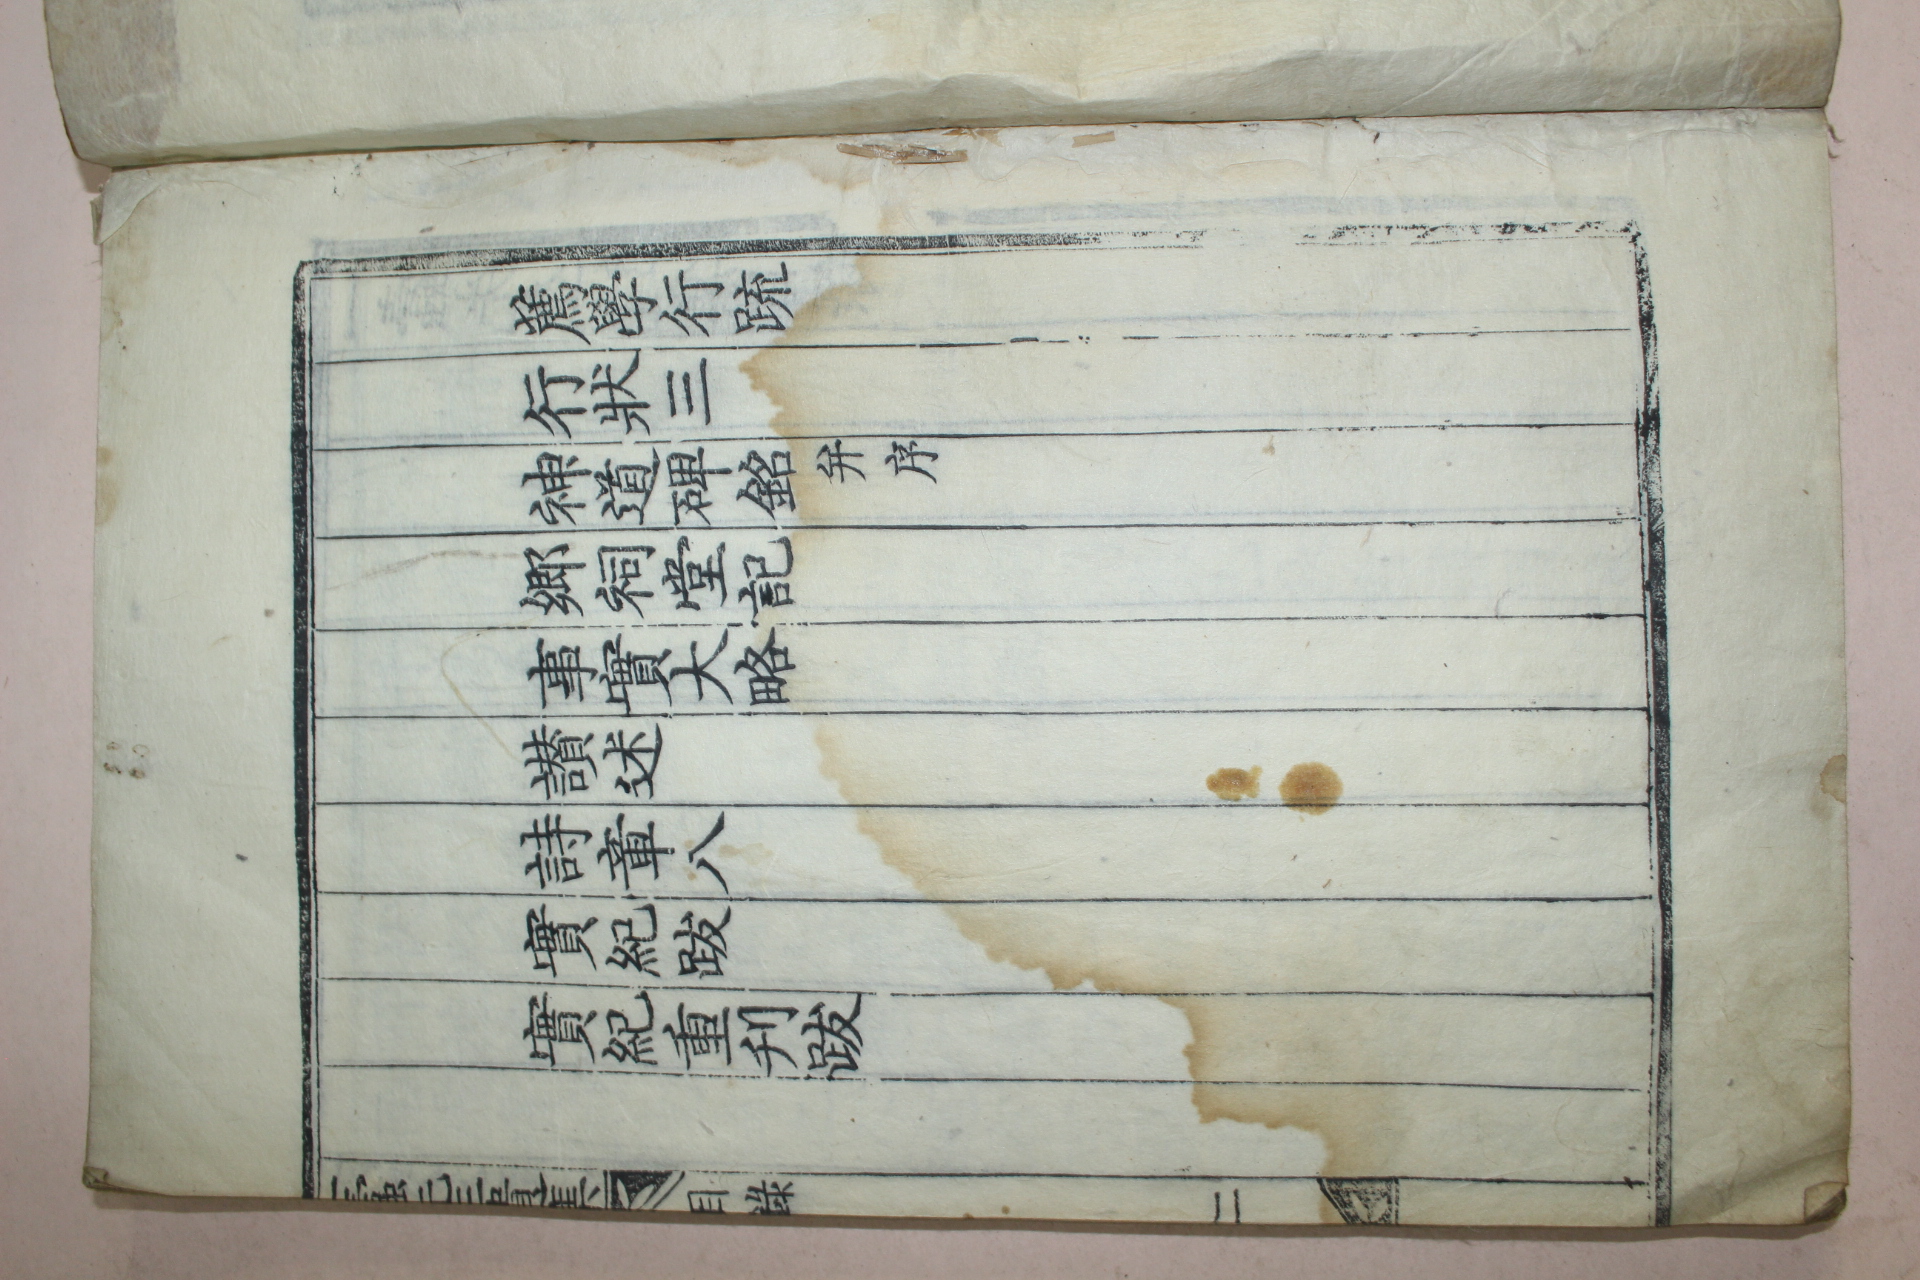 薦學行疏
行狀三
神道碑銘 并序
鄉祠堂記
事實大略
讃述
詩章八
實紀跋
實紀重刊跋
目錄 二